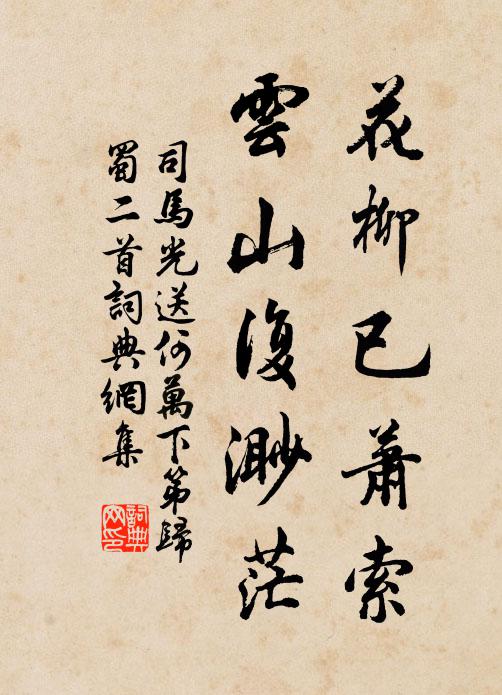 花柳已蕭索
雲山復渺茫
司馬光送何萬下第歸
蜀二首詞典網集
詞典
网印